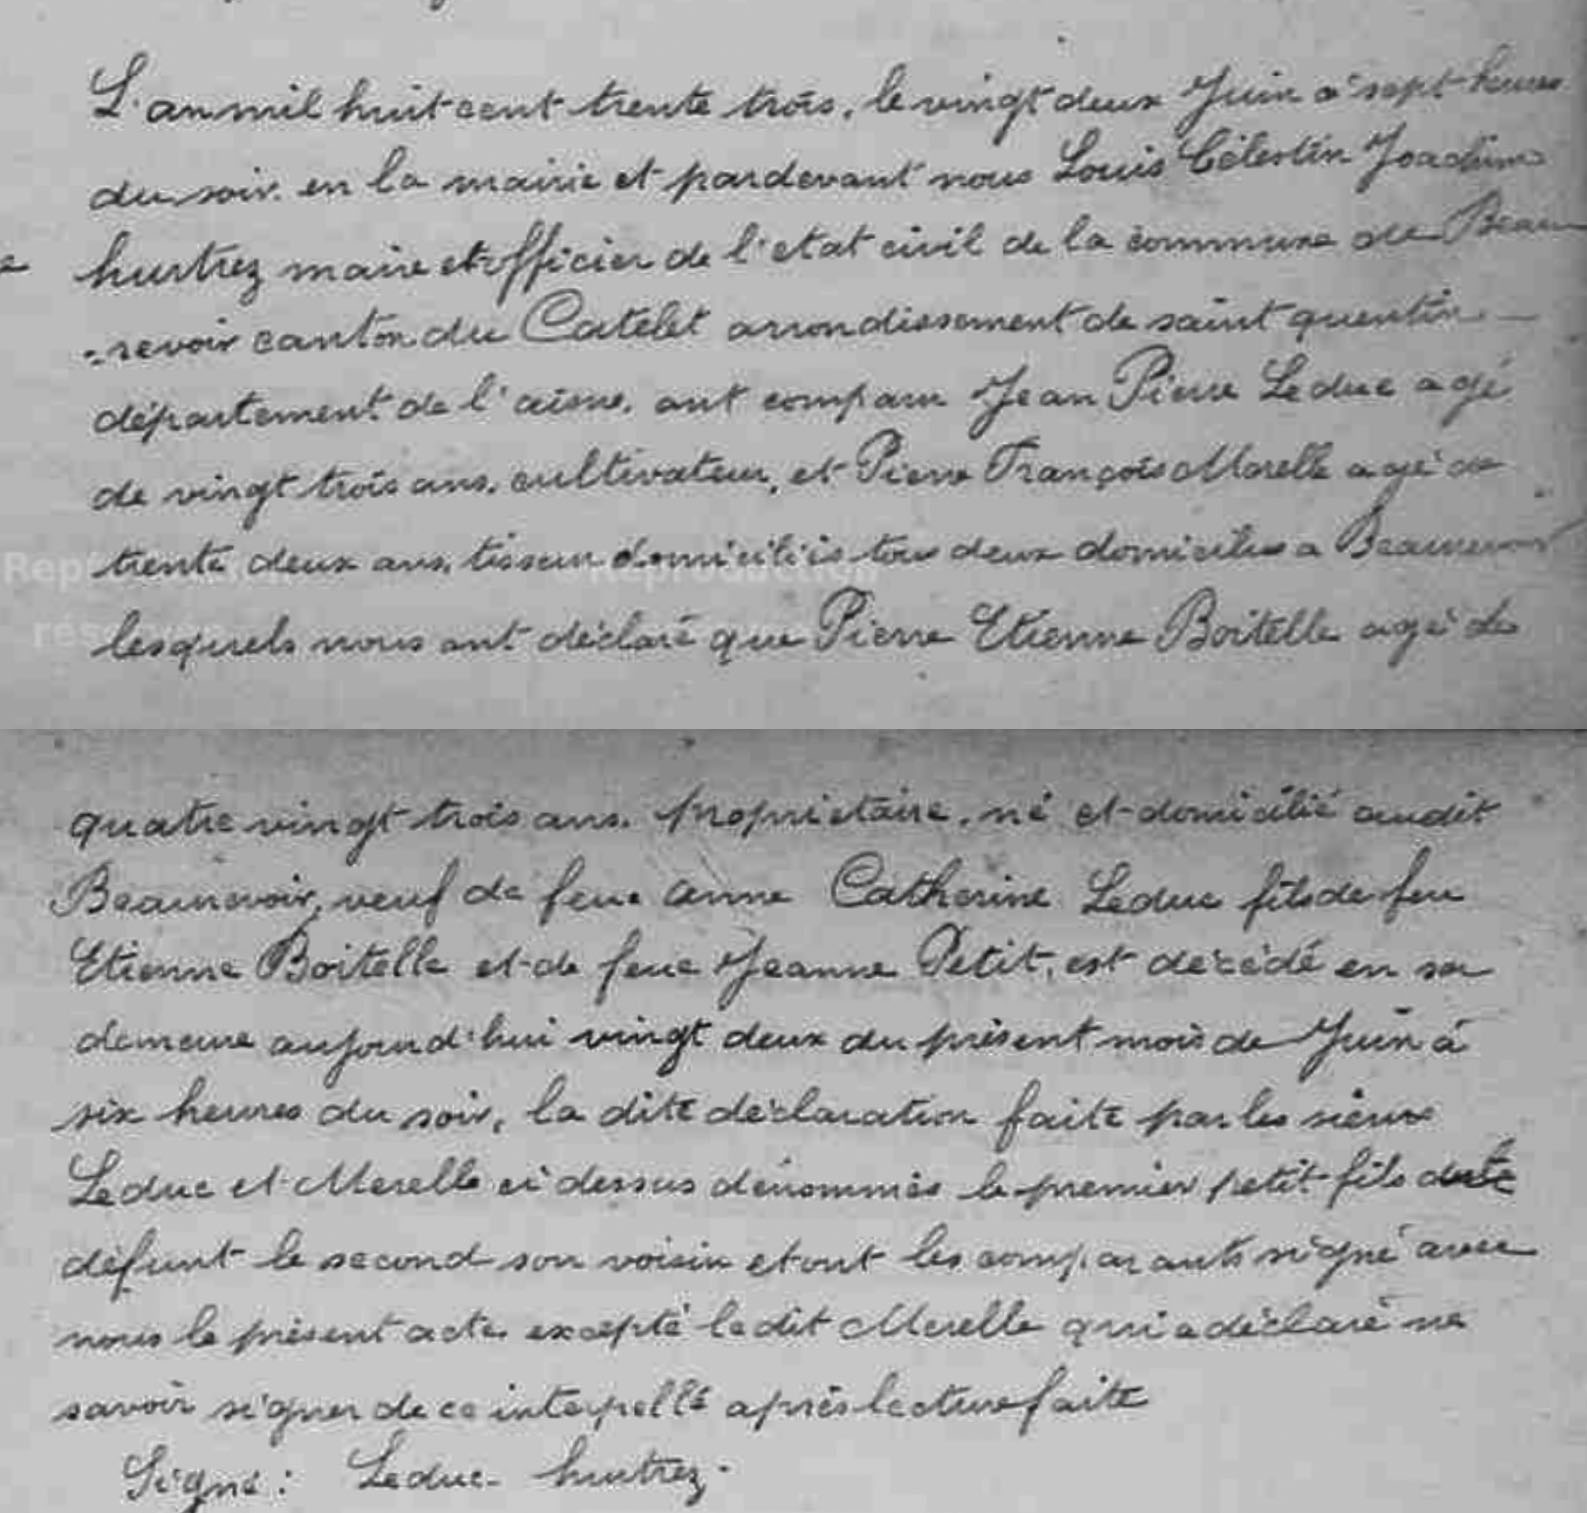 L'an mil huit cent trente trois, le vingt deux Juin à sept heures
du soir. en la mairie et pardevant nous Louis Célestin Joachim
hurtrez maire et officier de l'etat civil de la commune de Beau
=revoir canton du Catelet arrondissement de saint quentin —
département de l'aisne, ont comparu Jean Pierre Leduc agé
de vingt trois ans, cultivateur, et Pierre François Morelle agé de
trente deux ans, tisseur domiciliés tous deux domiciliés a Beaurevoir
lesquels nous ont déclaré que Pierre Etienne Boitelle agé de
quatre vingt trois ans. propriétaire, né et domicilié audit
Beaurevoir, veuf de feue anne Catherine Leduc fils de feu
Etienne Boitelle et de feue Jeanne Petit, est décédé en sa
demeure aujourd'hui vingt deux du présent mois de Juin à
six heures du soir, la dite déclaration faite par les sieurs
Leduc et Merelle ci dessus dénommés le premier petit fils
défunt le second son voisin et ont les comparants signé avec
nous le présent acte, excepté ledit Merelle qui a déclaré ne
savoir signer de ce interpellé après lecture faite
Signé: Leduc - hurtrez.